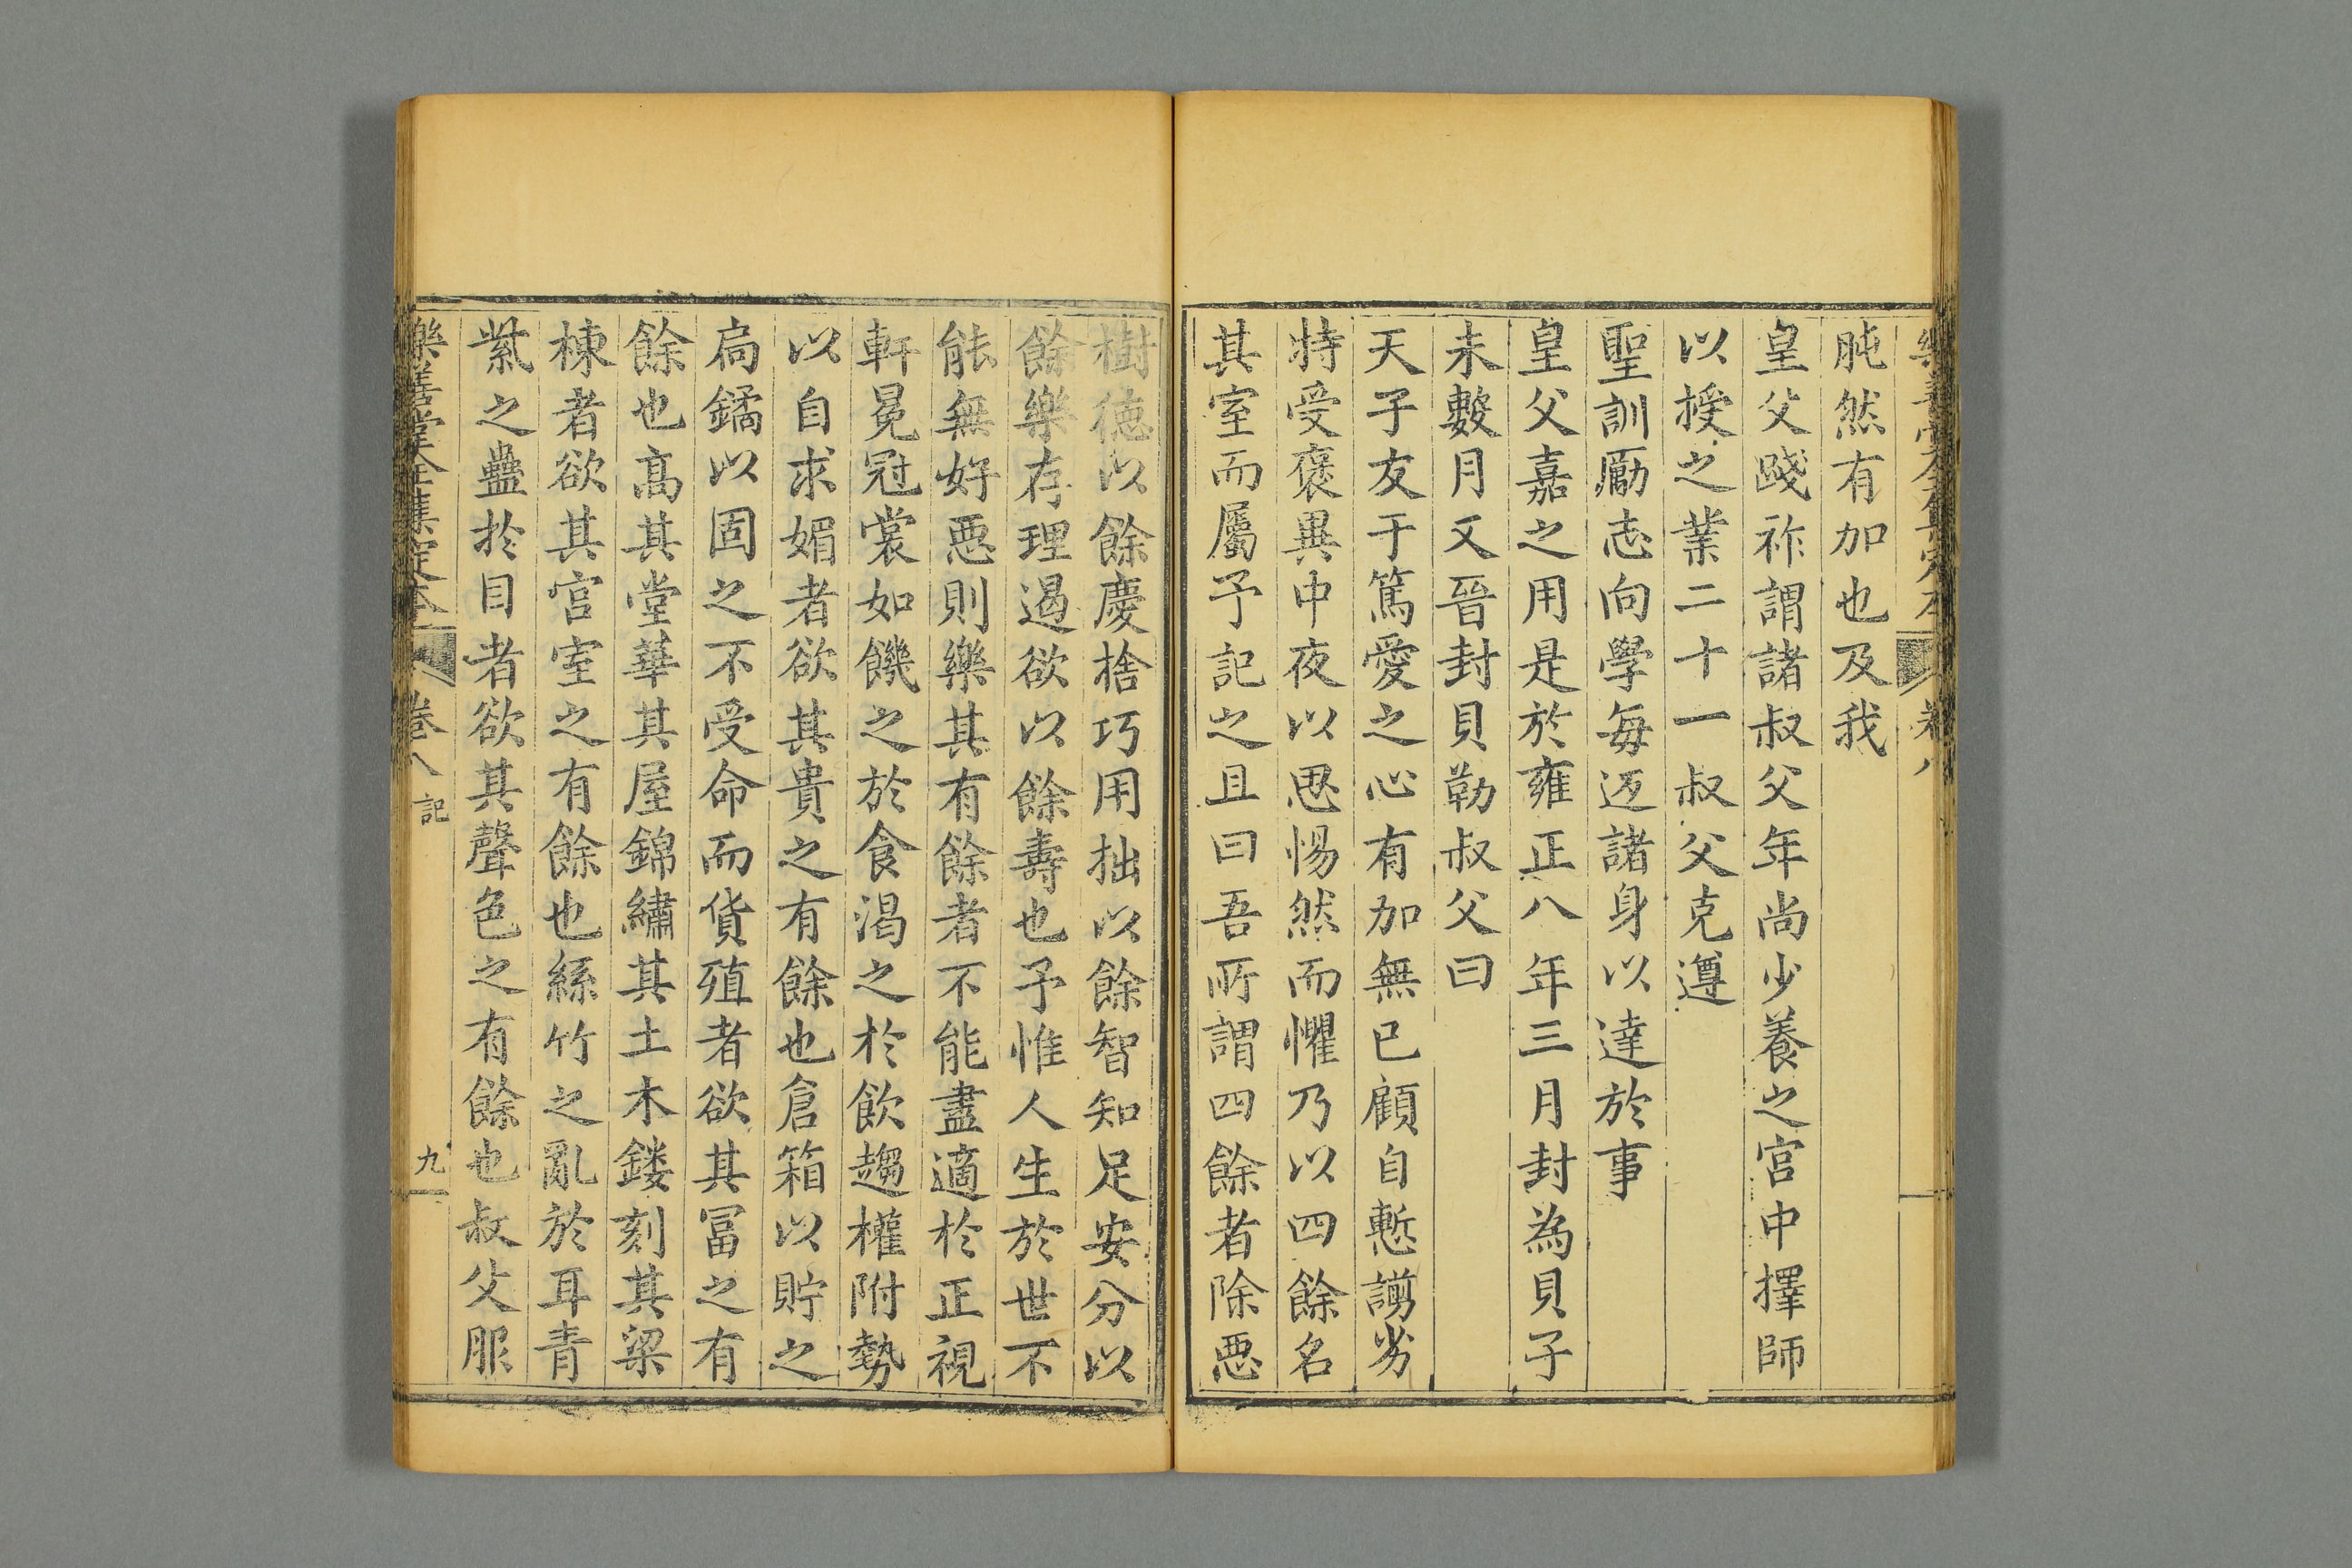 樂善堂全集定本 卷八
肫然有加也及我
皇父踐祚謂諸叔父年尚少養之宮中擇師
以授之業二十一叔父克遵
聖訓勵志向學每返諸身以達於事
皇父嘉之用是於雍正八年三月封為貝子
未數月又晉封貝勒叔父曰
天子友于篤愛之心有加無已顧自慙謭劣
特受褒異中夜以思惕然而懼乃以四餘名
其室而屬予記之且曰吾所謂四餘者除惡
樹德以餘慶捨巧用拙以餘智知足安分以
餘樂存理遏欲以餘壽也予惟人生於世不
能無好惡則樂其有餘者不能盡適於正視
軒冕冠裳如饑之於食渴之於飲趨權附勢
以自求媚者欲其貴之有餘也倉箱以貯之
扃鐍以固之不受命而貨殖者欲其富之有
餘也高其堂華其屋錦繡其土木鏤刻其梁
棟者欲其宮室之有餘也絲竹之亂於耳青
紫之蠱於目者欲其聲色之有餘也叔父服
樂善堂全集定本 卷八 記 九